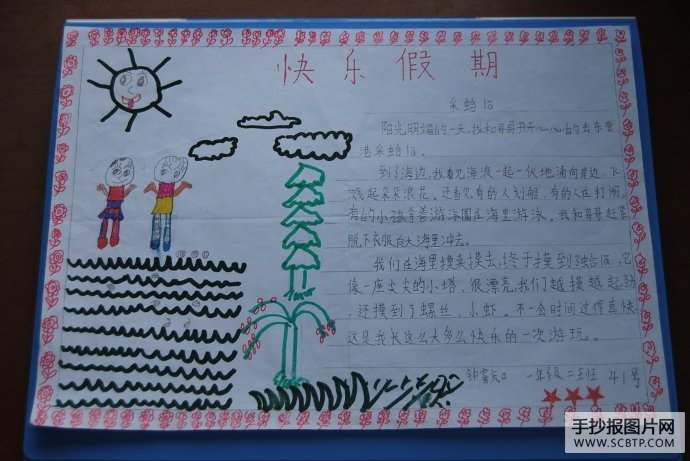 快乐假期
采蛤la
阳光明媚的一天,我和哥哥开开xinxin的去东营
港采蛤la。
到了海边,我看见海浪一起一伏地涌向岸边,飞
溅起朵朵浪花。还看见有的人划船,有的人在打闹,
有的小孩拿着游泳圈在海里游泳。我和哥哥赶紧
脱下衣服向大海里冲去。
我们在海里摸来摸去,终于摸到了蛤la,它
像一座尖尖的小塔,很漂亮,我们越摸越起劲
,还摸到了螺丝,小虾。不一会时间过得真快
这是我长这么大多么快乐的一次游玩。
一年级二班 41号
手抄报图片网
WWW.SCBTP.COM